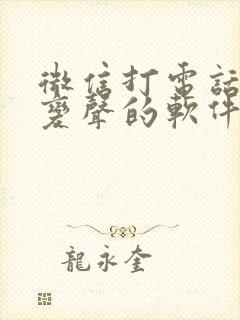 微信打電話
變聲的軟件
龍永奎